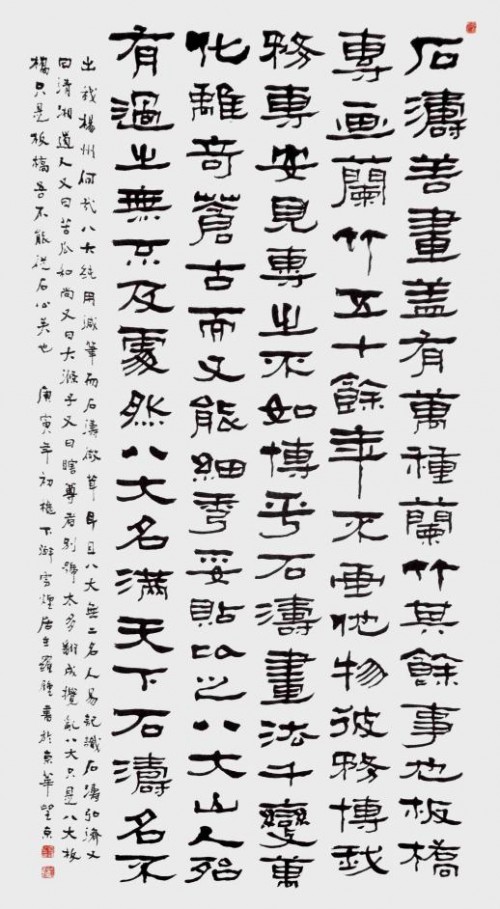 石濤善畫盖有萬種蘭竹其餘事也板橋
專画蘭竹五十餘年不画他物彼務博我
務專安見專之不如博乎石濤畫法千變萬
化離奇蒼古而又能細秀妥貼比之八大山人殆
有過之無不及處然八大名滿天下石濤名不
出我楊州何哉八大純用減筆而石濤微茸耳且八大無二名人易記識石濤弘濟又
曰清湘道人又曰苦瓜和尚又曰大滌子又曰瞎尊者別號太多翻成攪亂八大只是八大板
橋只是板橋吾不能從石公矣也 庚寅年初樵下游雪煙居主羅鍾書於京華望京